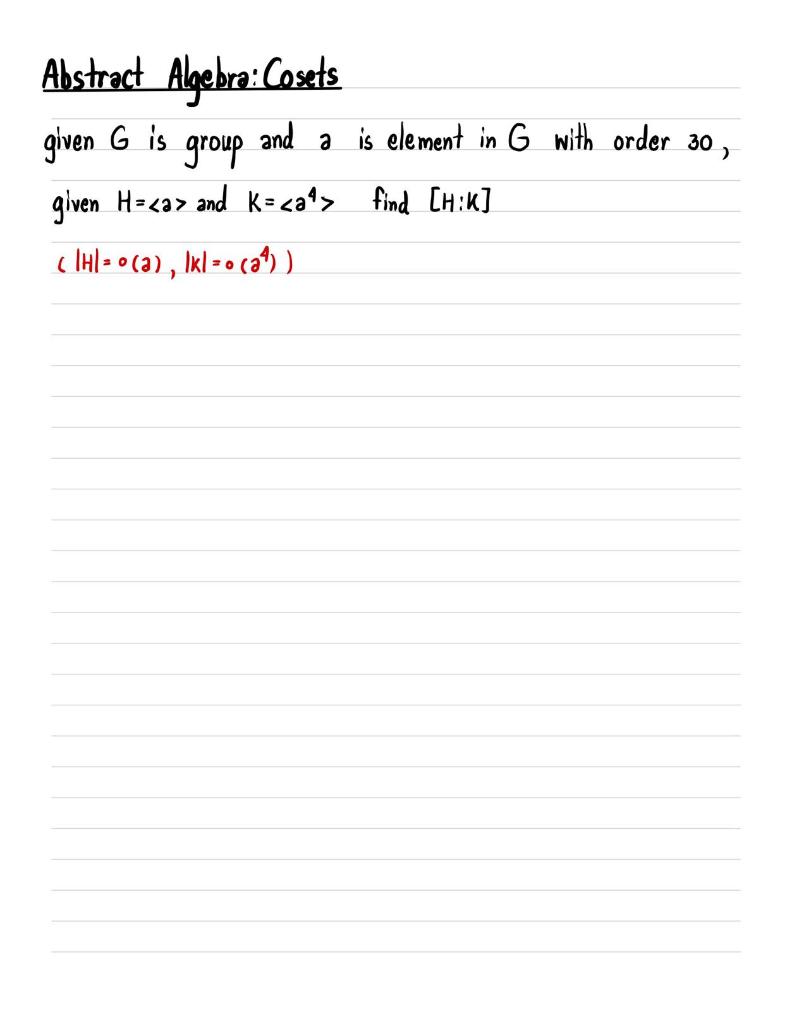 Abstract Algebra: Cosets
given G is group and a is element in G with order 30,
given H=<a> and K=<a⁴> find [H:K]
( |H|=o(a), |K|=o(a⁴) )